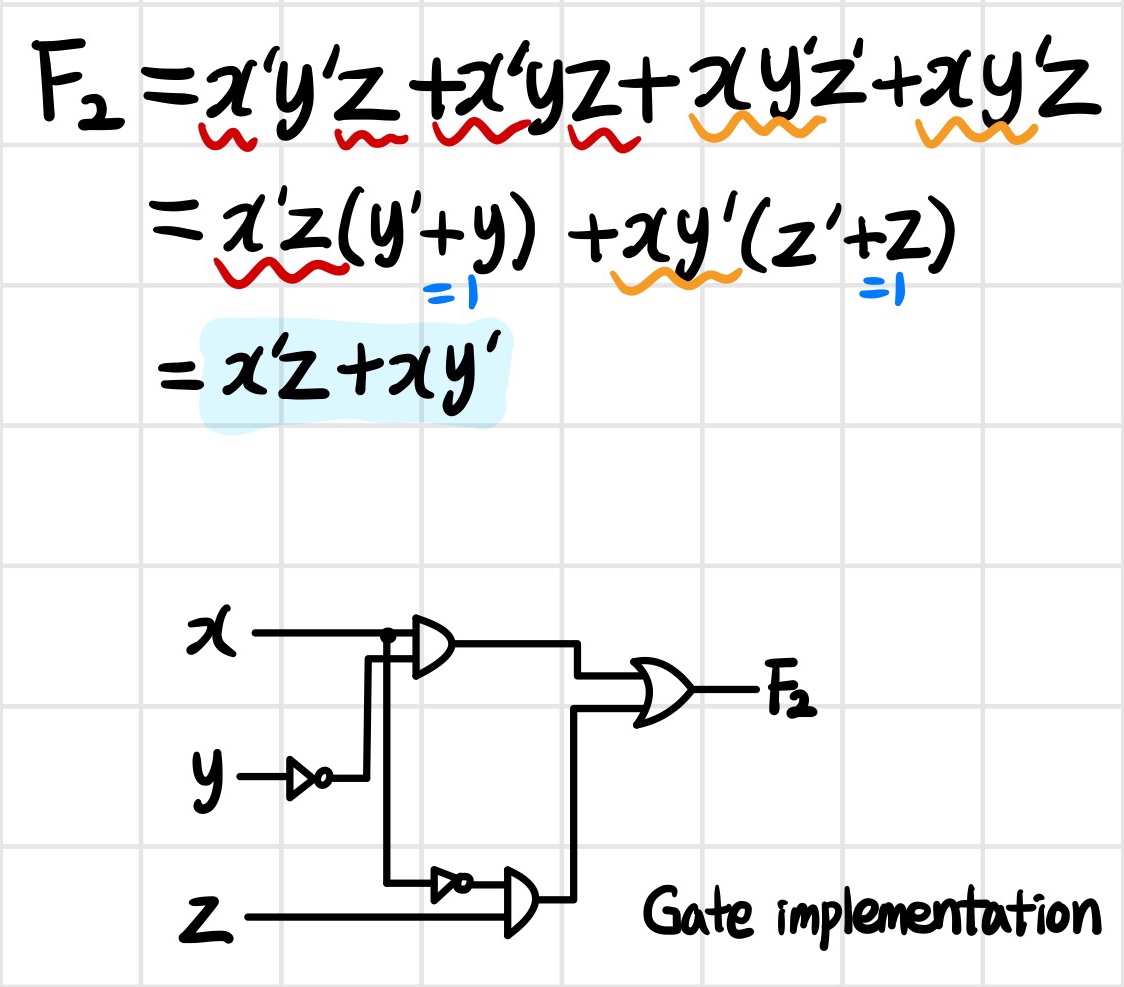 F₂ = x'y'z + x'yz + xy'z' + xy'z
= x'z(y'+y) + xy'(z'+z)
=1 =1
= x'z + xy'
x
F₂
y
z
Gate implementation